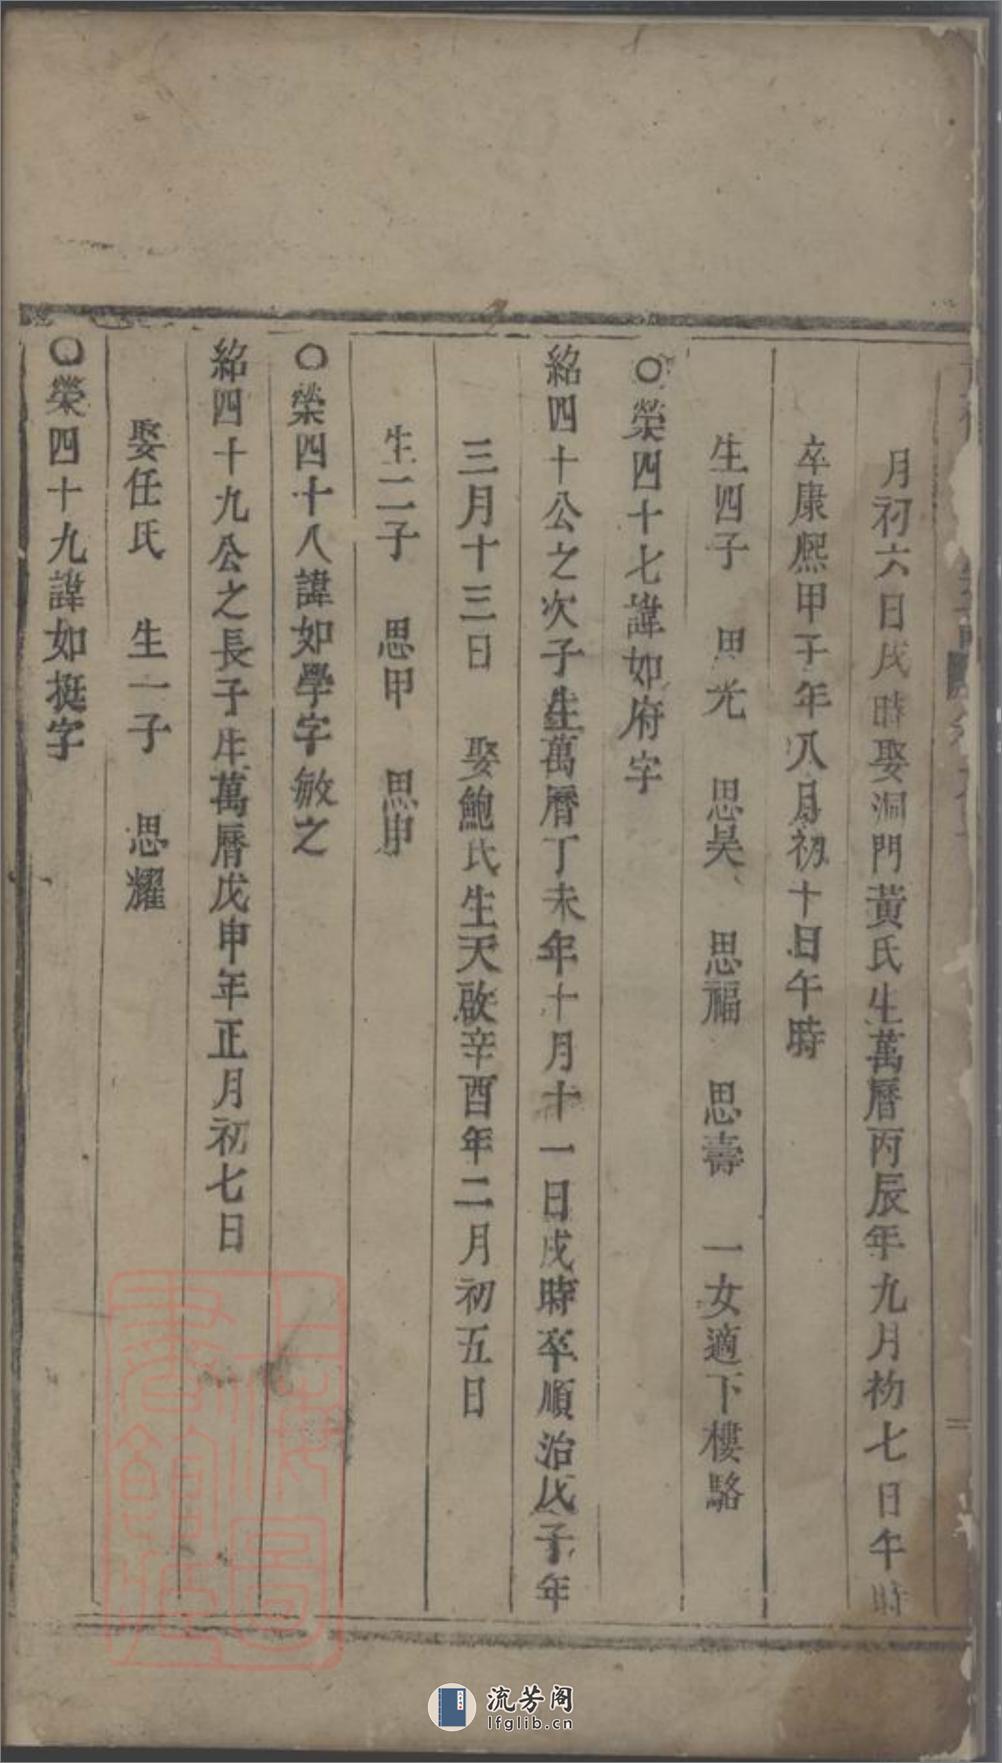 月初六日戌時娶洞門黃氏生萬曆丙辰年九月初七日午時
卒康熙甲子年八月初十日午時
生四子 思光 思吳 思福 思壽 一女適下樓駱
○榮四十七諱如府字
紹四十公之次子生萬曆丁未年十月十一日戌時卒順治戊子年
三月十三日 娶鮑氏生天啟辛酉年二月初五日
生二子 思甲 思申
○榮四十八諱如學字敏之
紹四十九公之長子生萬曆戊申年正月初七日
娶任氏 生一子 思耀
○榮四十九諱如挺字
上海圖書館藏
流芳阁
lfglib.cn